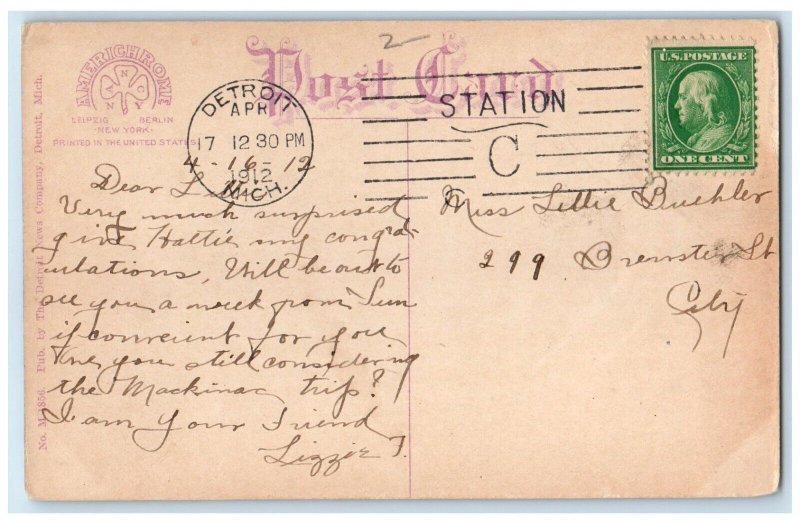 2
AMERICHROME
ANNCY
LEIPZIG BERLIN
NEW YORK
PRINTED IN THE UNITED STATES
Post Card
DETROIT
APR
17 12 30 PM
1912
MICH.
STATION
C
U.S. POSTAGE
ONE CENT
No. M 1856. Pub. by The Detroit News Company, Detroit, Mich.
4-16-12
Dear L
Very much surprised
give Hattie my congrat-
ulations, Will be out to
see you a week from Sun
if convenient for you
Are you still considering
the Mackinac trip?
I am your Friend
Lizzie F.
Miss Lillie Buehler
299 Brewster St
City